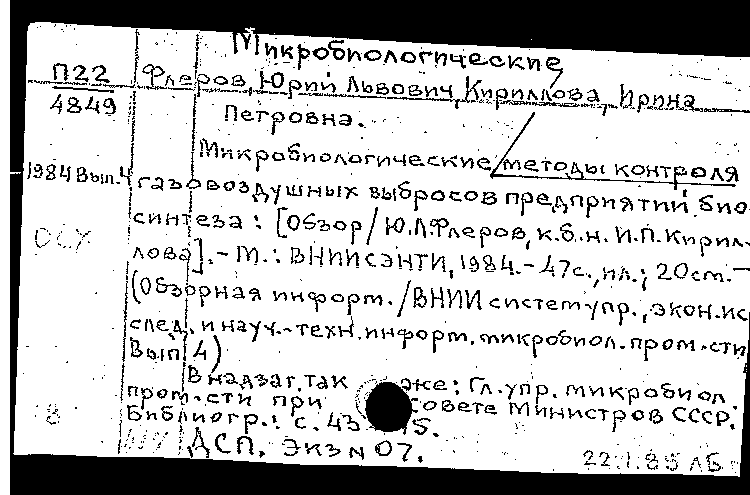 Микробиологические
П22
4849
Флеров, Юрий Львович, Кириллова, Ирина
Петровна.
Микробиологические методы контроля
1984 Вып. 4
газовоздушных выбросов предприятий био-
синтеза: [Обзор / Ю.Л. Флеров, к.б.н. И.П. Кирил-
лова]. - М.: ВНИИСЭНТИ, 1984. - 47с., ил.; 20см. -
ОСУ
(Обзорная информ. / ВНИИ систем упр., экон. ис
след. и науч.-техн. информ. микробиол. пром-сти
Вып. 4)
В надзаг. также: Гл. упр. микробиол.
пром-сти при Совете Министров СССР.
Библиогр.: с. 43 45.
ДСП. Экз N 07.
22.1.85 ЛБ